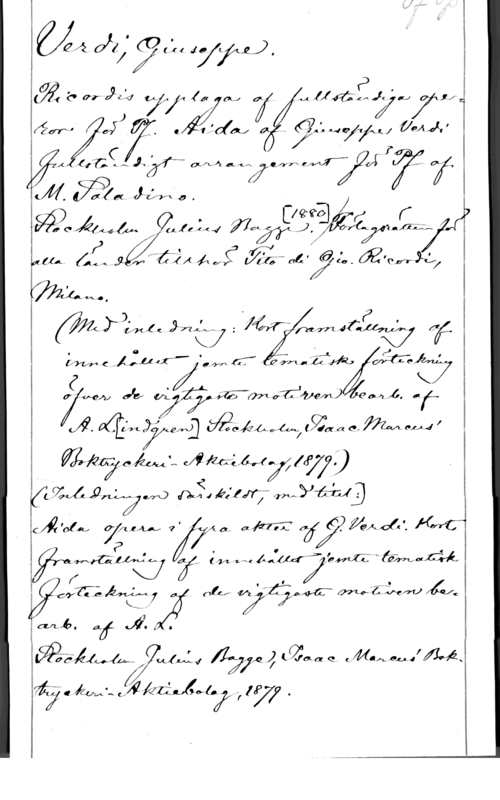 Verdi, Giuseppe.
Ricordis upplaga af fullständiga ope=
ror för Pf. Aida af Giuseppe Verdi
fullständigt arrangement för Pf af
M. Saladino.
Stockholm Julius Bagge. [1880] Förlagsrätten för
alla länder tillhör Tito di Gio. Ricordi,
Milano.
(Med inledning: Kort framställning af
innehållet jemte tematisk förteckning
öfver de vigtigaste motiven bearb. af
A. L[indgren] Stockholm, Isaac Marcus'
Boktryckeri-Aktiebolag, 1879.)
(Inledningen särskildt, med titel:]
Aida opera i fyra akter af G. Verdi. Kort
framställning af innehållet jemte tematisk
förteckning af de vigtigaste motiven be=
arb. af A. L.
Stockholm Julius Bagge), Isaac Marcus' Bok=
tryckeri-Aktiebolag, 1879.